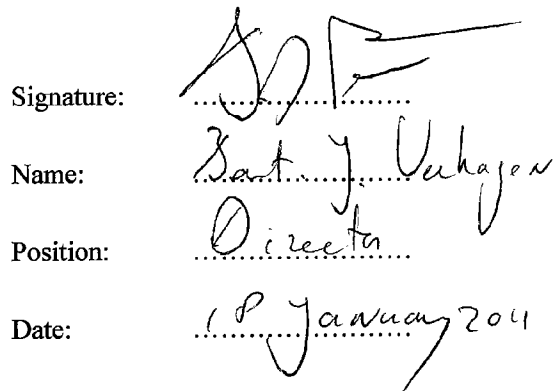 Signature:
Name: Bart. J. Verhagen
Position: Director
Date: 18 January 2011